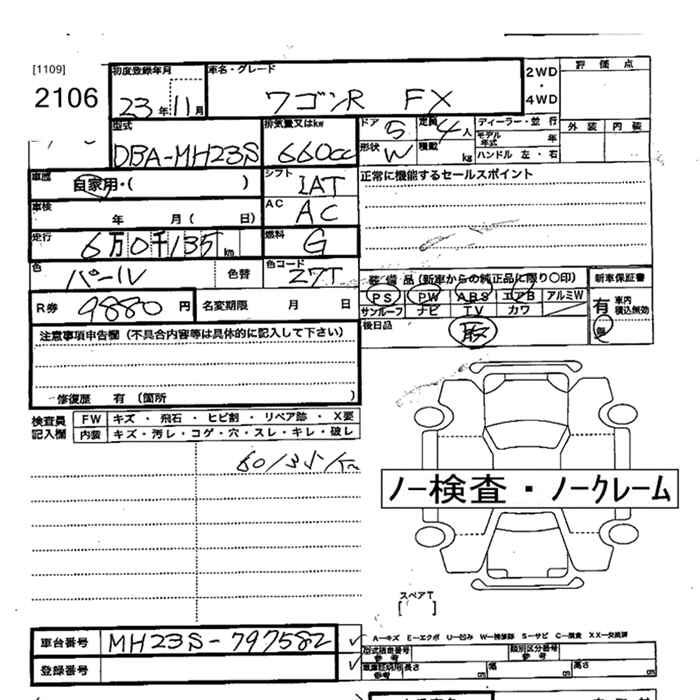 [1109]
2106
初度登録年月
23年11月
車名・グレード
ワゴンR FX
2WD
・
4WD
評価点
外装 内装
型式
DBA-MH23S
排気量又はkw
660cc
ドア 5
定員 4人
形状 W
積載 kg
ディーラー・並行
モデル年式 年
ハンドル 左・右
車歴
自家用・( )
シフト
IAT
正常に機能するセールスポイント
車検
年 月( 日)
AC
AC
走行
6万0千135km
燃料
G
色
パール
色替
色コード
Z7T
装備品(新車からの純正品に限り〇印)
新車保証書
PS PW ABS エアB アルミW
サンルーフ ナビ TV カワ
有 車内積込無効
無
後日品
取
R券
9880円
名変期限 月 日
注意事項申告欄(不具合内容等は具体的に記入して下さい)
修復歴 有(箇所 )
検査員記入欄
FW キズ・飛石・ヒビ割・リペア跡・X要
内装 キズ・汚レ・コゲ・穴・スレ・キレ・破レ
60135km
ノー検査・ノークレーム
スペアT
[ ]
車台番号
MH23S-797582
登録番号
A―キズ E―エクボ U―凹み W―補修跡 S―サビ C―腐食 XX―交換済
型式指定番号
参考
類別区分番号
参考
長さ cm 幅 cm 高さ cm